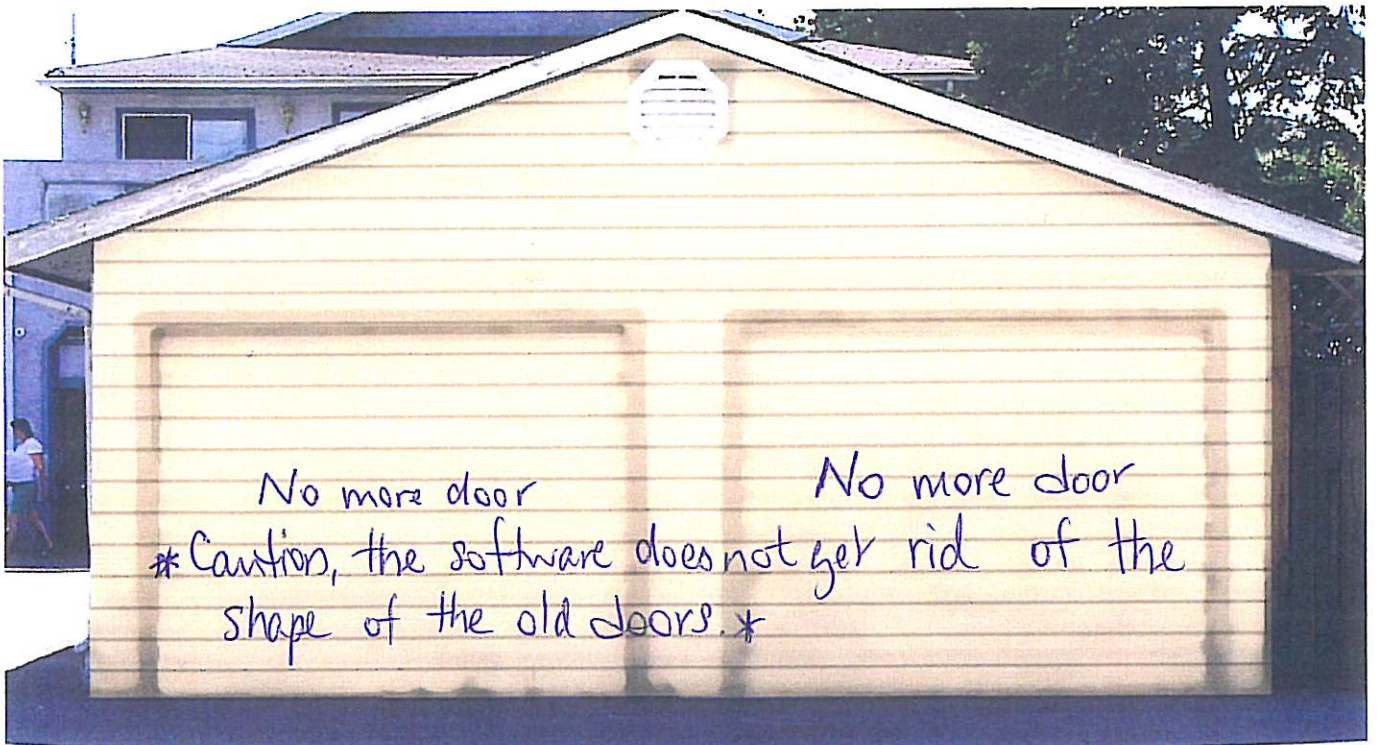 No more door
No more door
*Caution, the software does not get rid of the
shape of the old doors.*